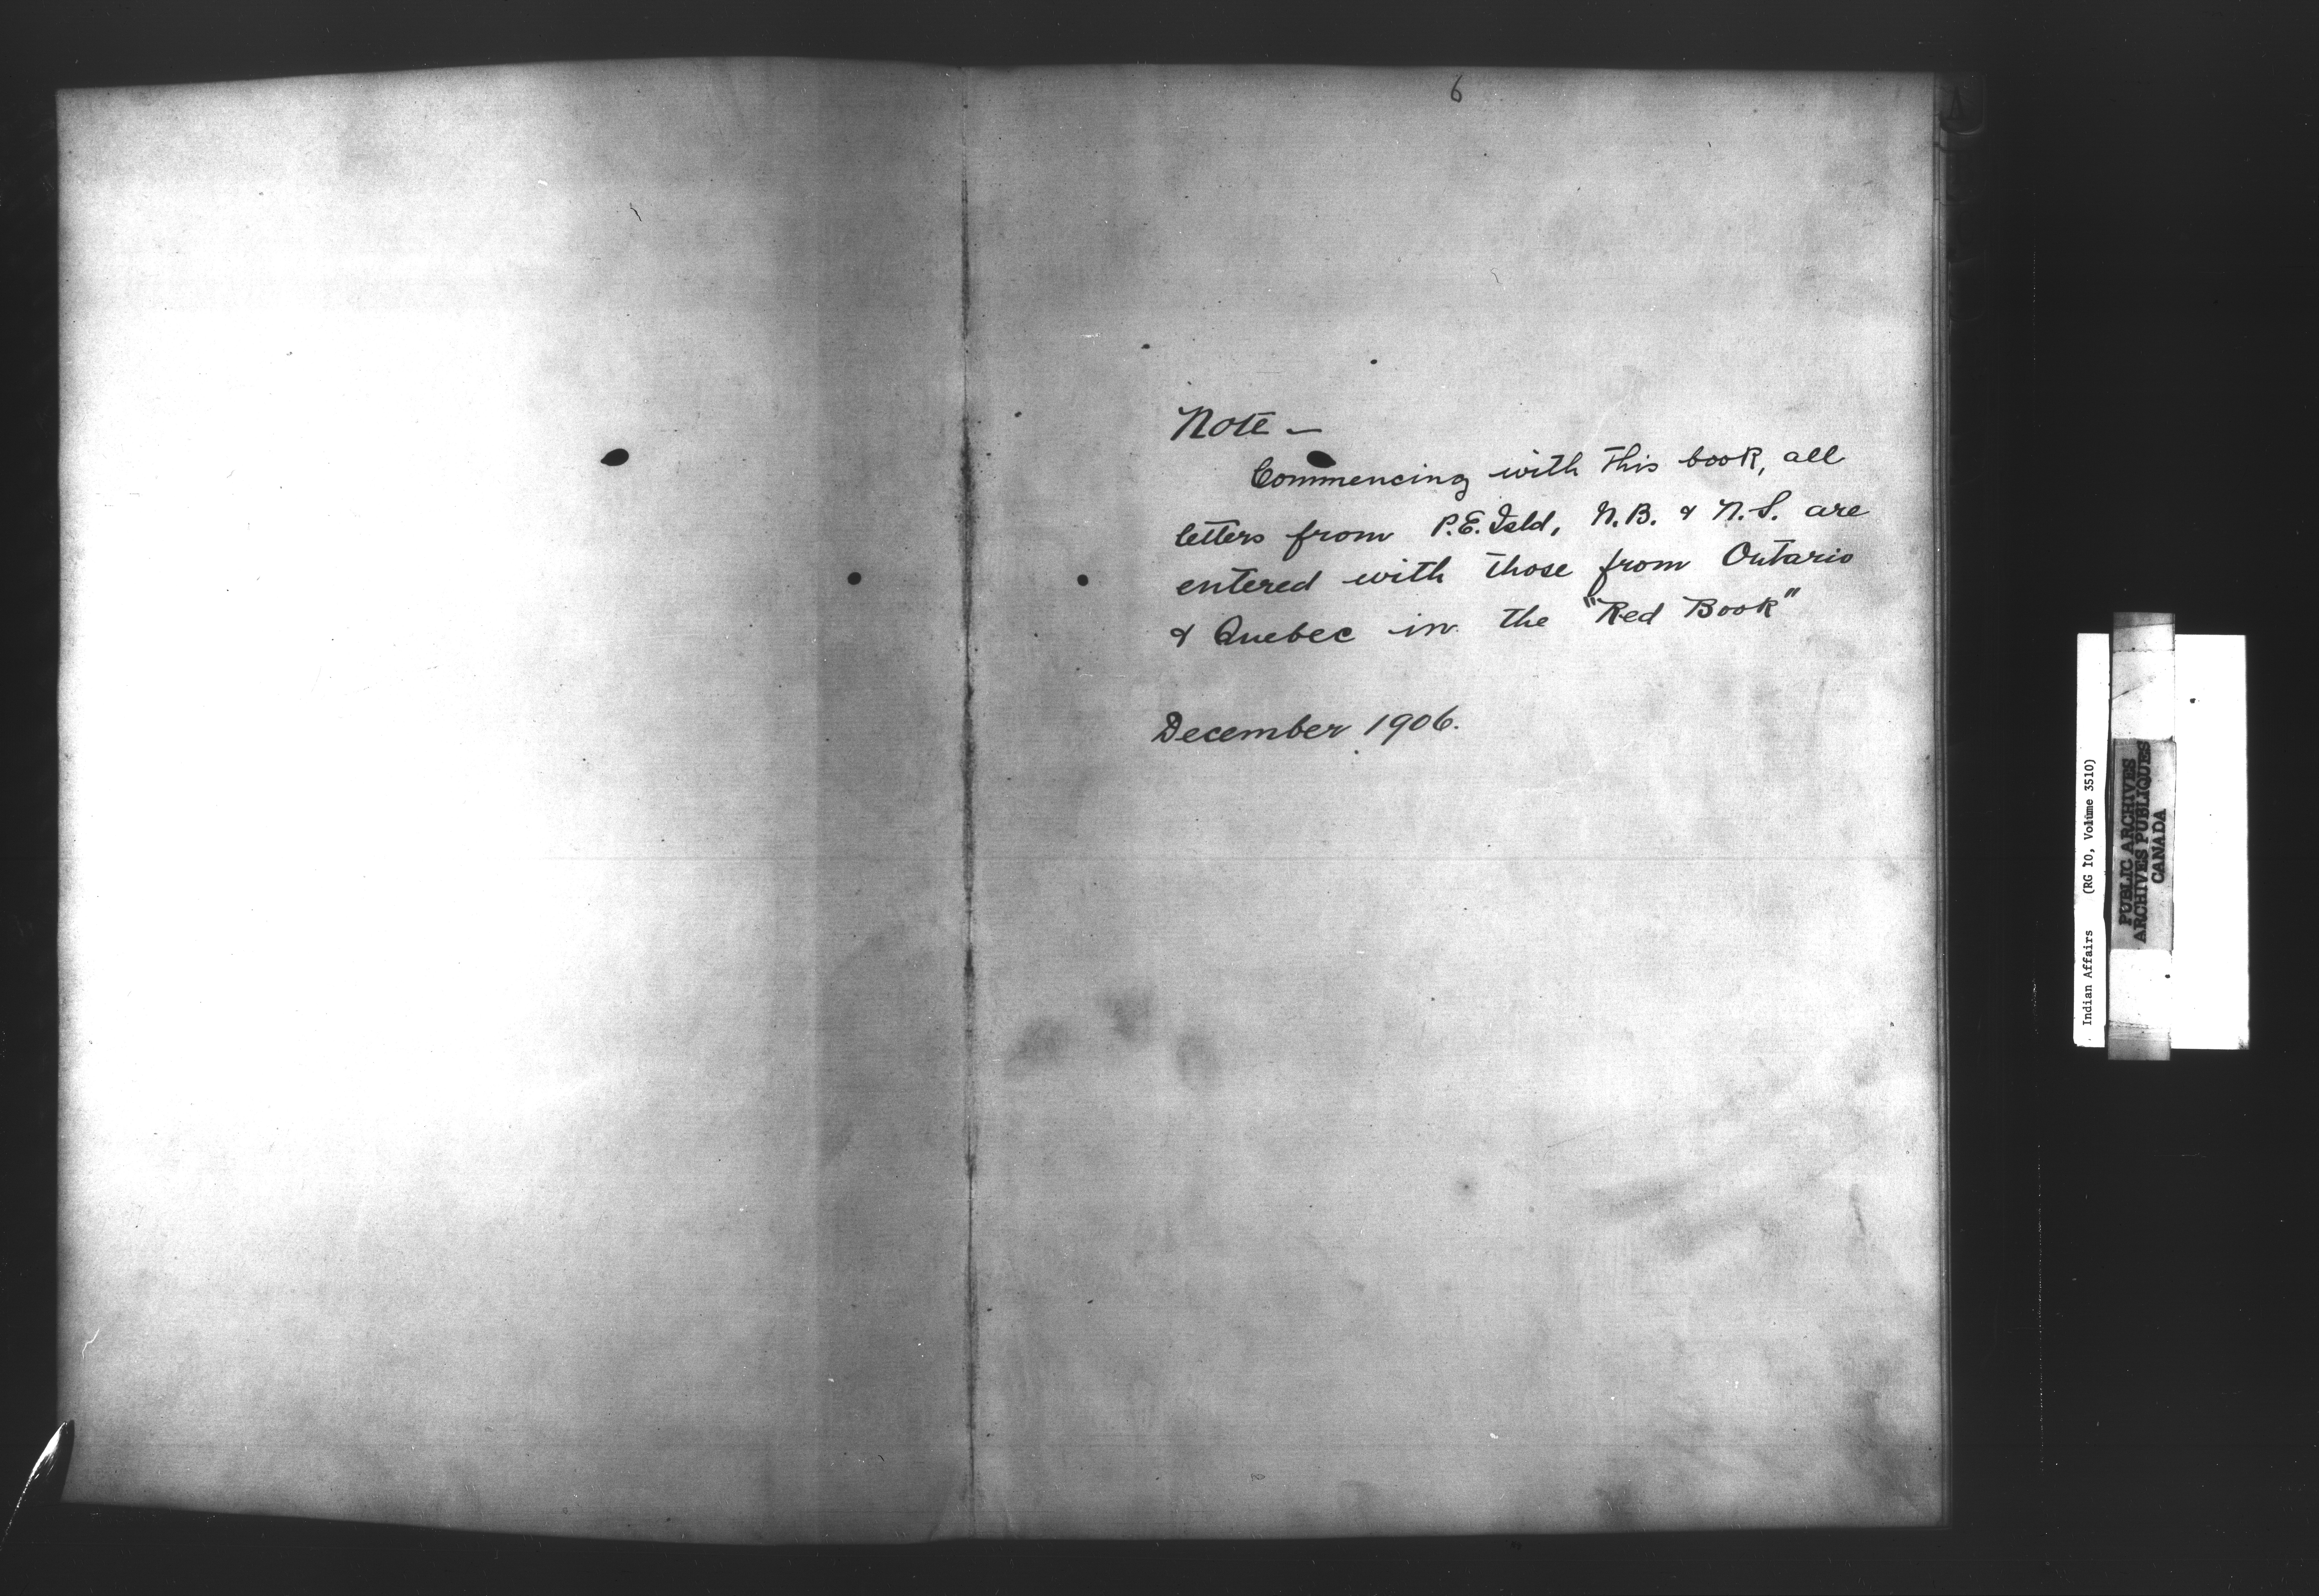 6
Note —
Commencing with this book, all
letters from P.E. Isld, N.B. & N.S. are
entered with those from Ontario
& Quebec in the "Red Book"
December 1906.
Indian Affairs (RG 10, Volume 3510)
PUBLIC ARCHIVES
ARCHIVES PUBLIQUES
CANADA